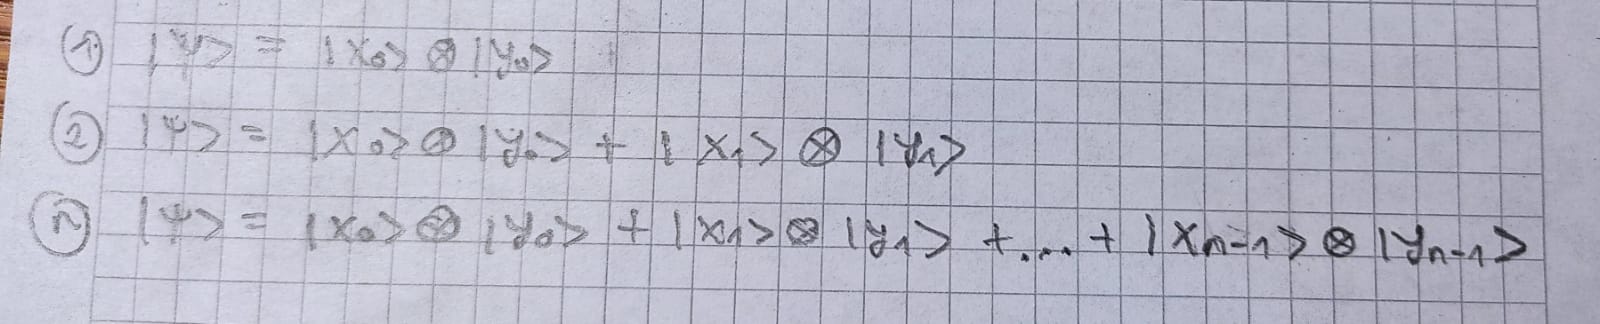 ① |ψ> = |x₀> ⊗ |y₀>
② |ψ> = |x₀> ⊗ |y₀> + |x₁> ⊗ |y₁>
ⓝ |ψ> = |x₀> ⊗ |y₀> + |x₁> ⊗ |y₁> + ... + |xₙ₋₁> ⊗ |yₙ₋₁>